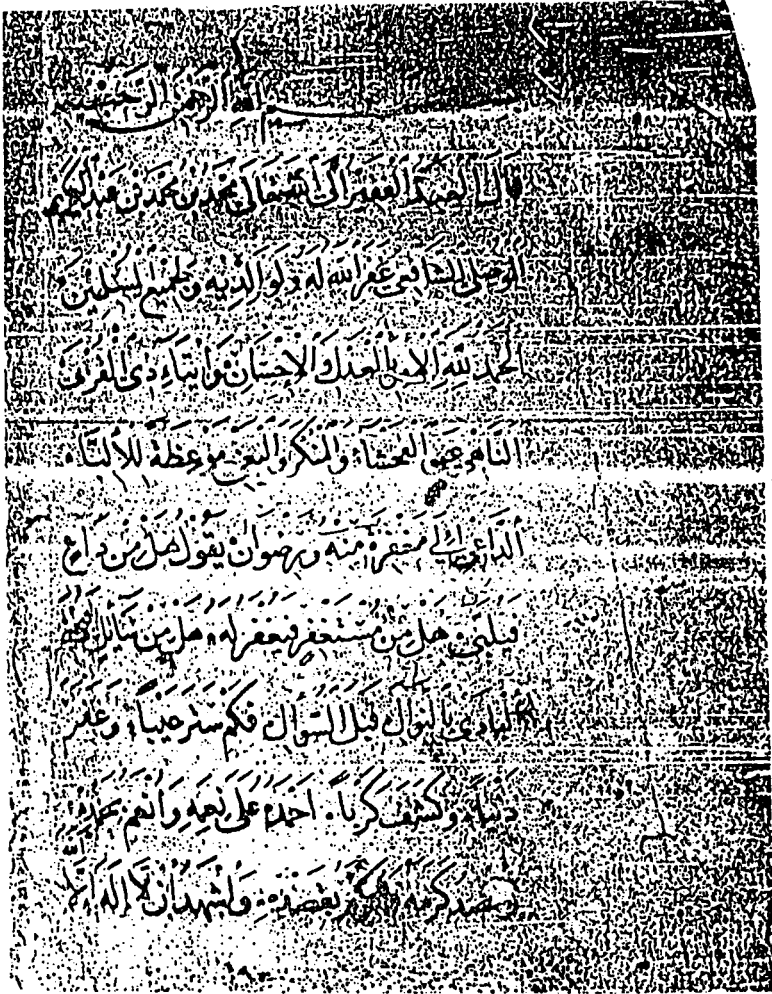 بسم الله الرحمن الرحيم
قال العبد الفقير الى الله تعالى محمد بن محمد بن عبد الكريم
الموصلي الشافعي غفر الله له ولوالديه ولجميع المسلمين
الحمد لله الآمر بالعدل والإحسان وإيتاء ذي القربى
الناهي عن الفحشاء والمنكر والبغي موعظة للألباء
الداعي إلى مغفرة منه ورضوان يقول هل من داع
فيلبى هل من مستغفر فيغفر له هل من سائل
البادئ بالنوال قبل السؤال فكم ستر عيباً وغفر
ذنباً وكشف كرباً أحمده على نعمه وأنعم بحمده
كرمه بقصده وأشهد أن لا إله إلا الله